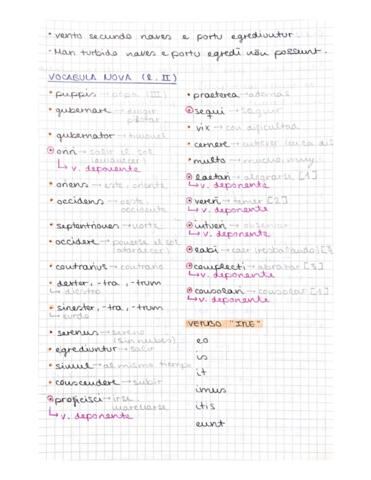 • vento secundo naves e portu egrediuntur.
• Mari turbido naves e portu egredi non possunt.
VOCABULA NOVA (L. II)
• puppis → popa (III)
• gubernare → dirigir, pilotar
• gubernator → timonel
⊙ oriri → salir el sol (amanecer)
↳ v. deponente
• oriens → este, oriente
• occidens → oeste, occidente
• septentriones → norte
• occidere → ponerse el sol (atardecer)
• contrarius → contrario
• dexter, -tra, -trum
↳ diestro
• sinester, -tra, -trum
↳ zurdo
• serenus → sereno (sin nubes)
• egrediuntur → salir
• simul → al mismo tiempo
• conscendere → subir
⊙ proficisci → irse, marcharse
↳ v. deponente
• praeterea → además
⊙ sequi → seguir
• vix → con dificultad
• cernere
• multo → mucho, muy
⊙ laetari → alegrarse [1]
↳ v. deponente
⊙ vereri → temer [2]
↳ v. deponente
⊙ intueri → observar
↳ v. deponente
⊙ labi → caer (resbalando) [3]
⊙ complecti → abrazar [3]
↳ v. deponente
⊙ consolari → consolar [1]
↳ v. deponente
VERBO "IRE"
eo
is
it
imus
itis
eunt